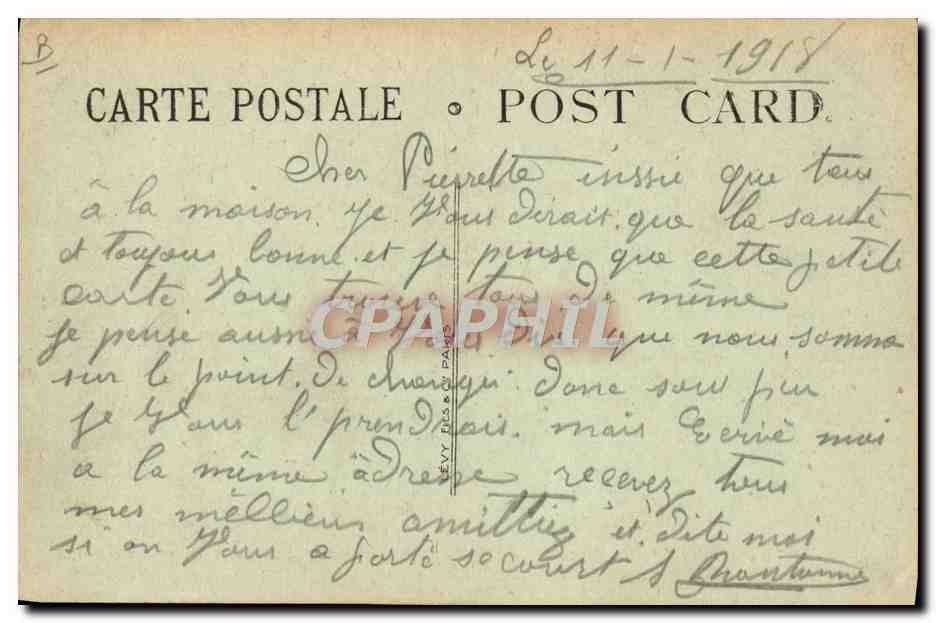 B
Le 11-1-1918
CARTE POSTALE POST CARD
Cher Pierrette inssie que tous
à la maison je Vous dirait que la santé
et toujous bonne et je pense que cette petite
carte Vous trouve tous de même
je pense aussi à Vous que nous somme
sur le point de changé donc sou peu
je Vous l'prendrais. mais Ecrivé moi
a la même adresse recevez tous
mes mellieur amittiez et dite moi
si on Vous a porté secourt
LÉVY FILS & Cie PARIS
CPAPHIL